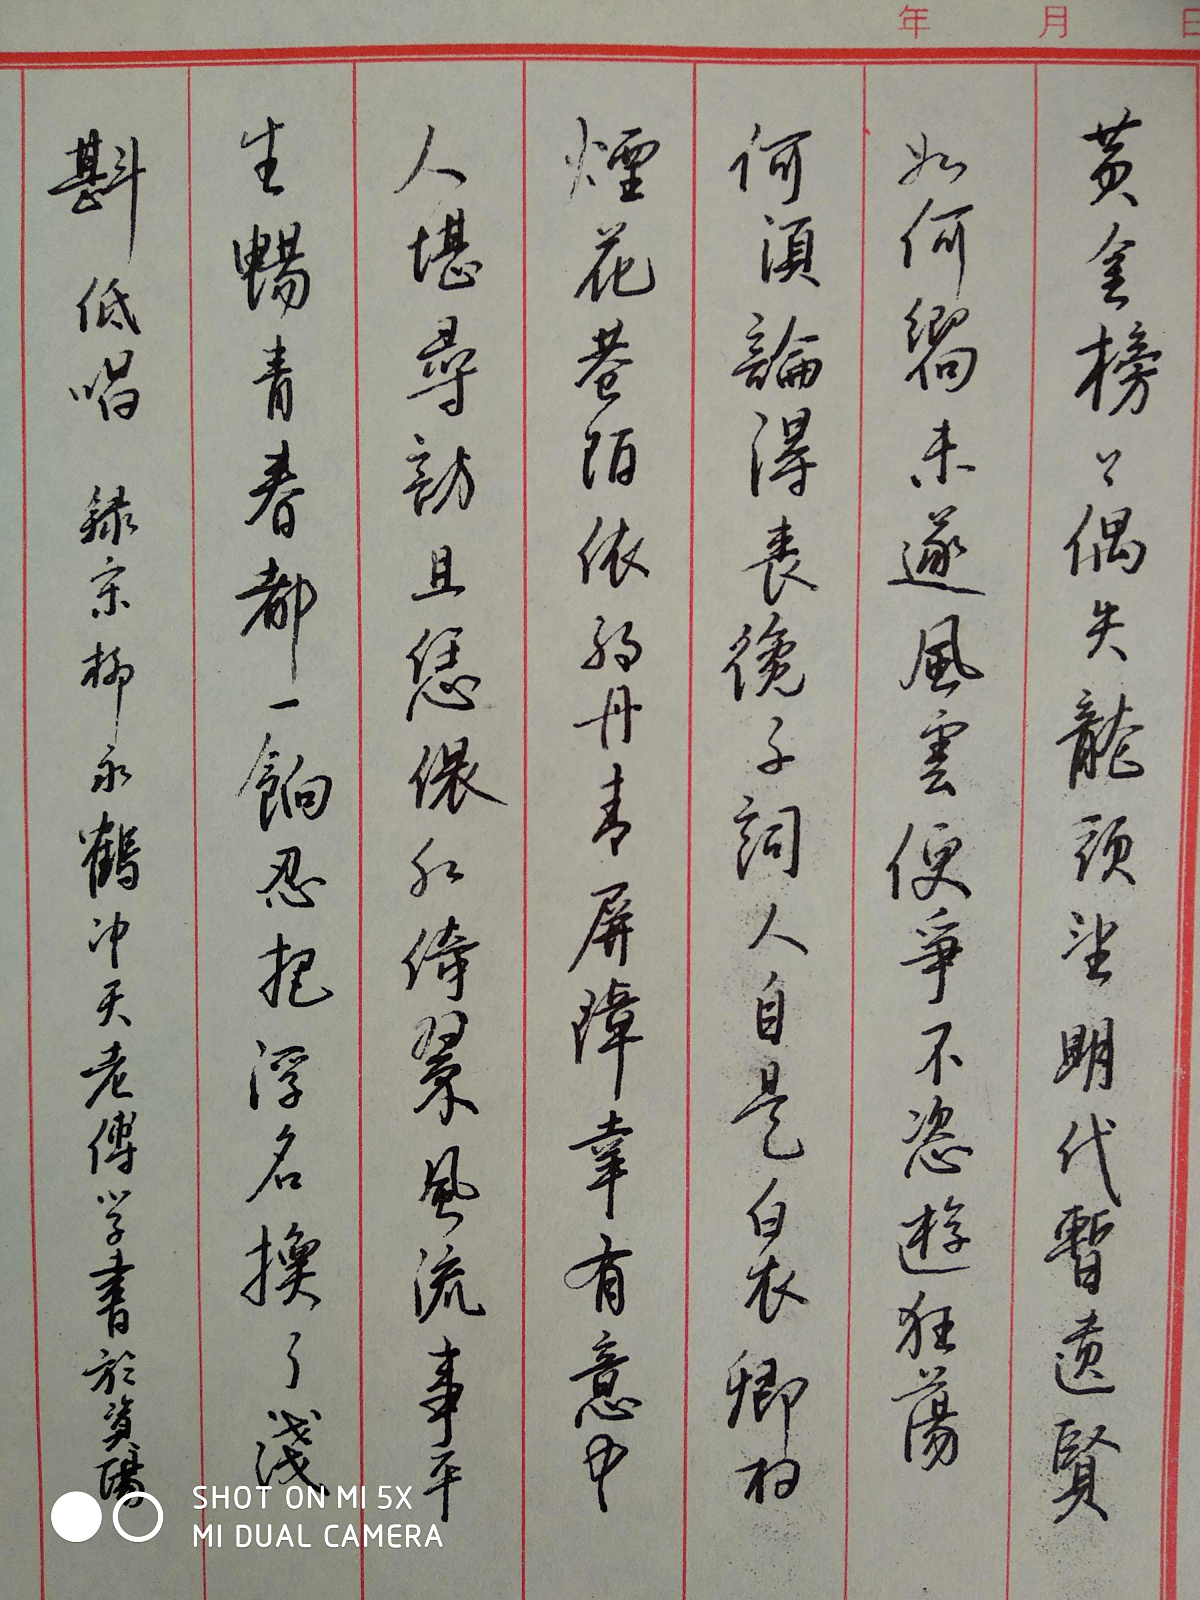 年 月 日
黃金榜上偶失龍頭望明代暫遺賢
如何嚮未遂風雲便爭不恣遊狂蕩
何須論得喪纔子詞人自是白衣卿相
煙花巷陌依約丹青屏障幸有意中
人堪尋訪且恁偎紅倚翠風流事平
生暢青春都一餉忍把浮名換了淺
斟低唱 録宋柳永鶴冲天老傅学書於資陽
SHOT ON MI 5X
MI DUAL CAMERA